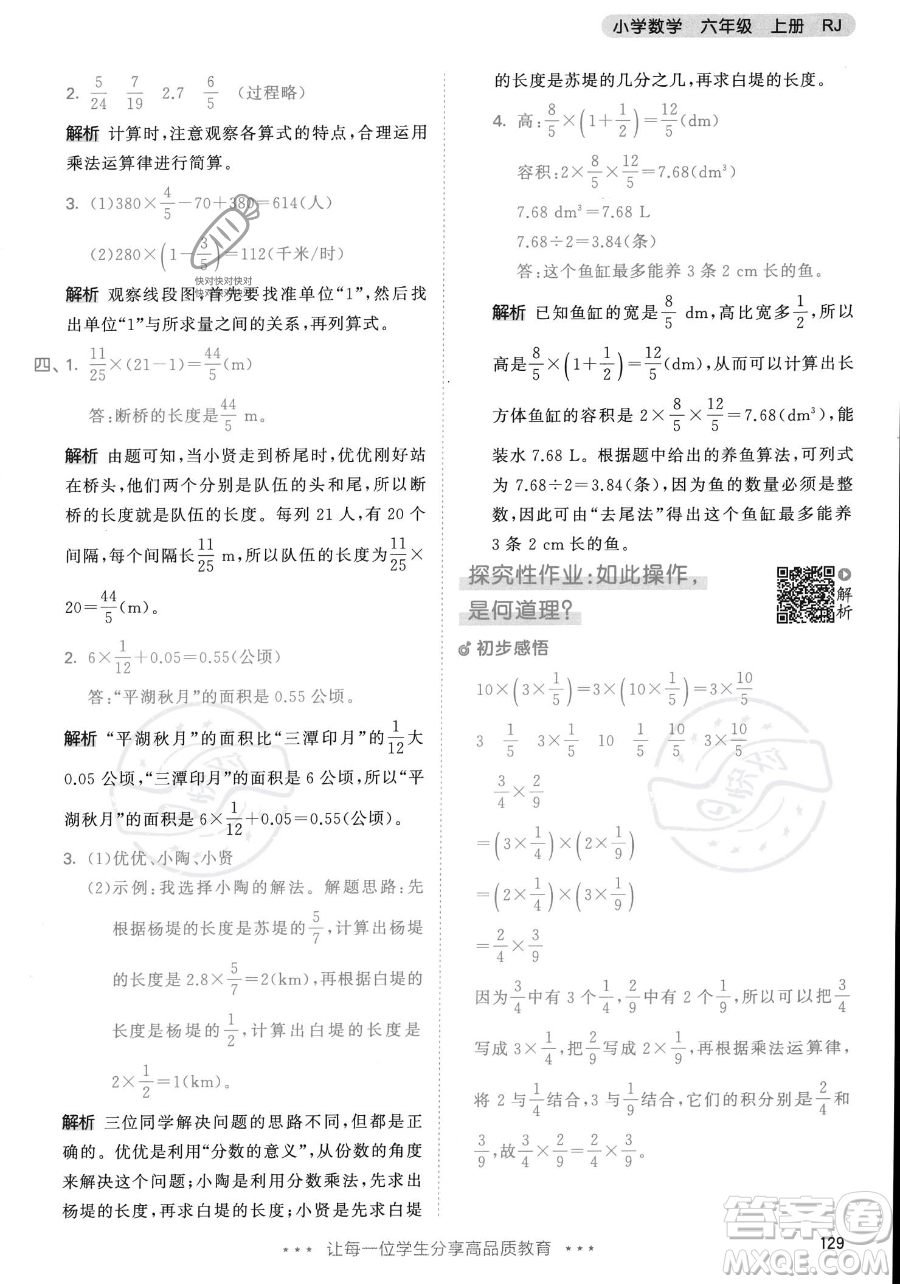 小学数学 六年级 上册 RJ
2. 5/24 7/19 2.7 6/5 (过程略)
解析 计算时,注意观察各算式的特点,合理运用
乘法运算律进行简算。
3. (1)380×4/5-70+380=614(人)
(2)280×(1-3/5)=112(千米/时)
快对快对快对快对
快对快对快对快对
解析 观察线段图,首先要找准单位“1”,然后找
出单位“1”与所求量之间的关系,再列算式。
四、1. 11/25×(21-1)=44/5(m)
答:断桥的长度是44/5 m。
解析 由题可知,当小贤走到桥尾时,优优刚好站
在桥头,他们两个分别是队伍的头和尾,所以断
桥的长度就是队伍的长度。每列 21 人,有 20 个
间隔,每个间隔长11/25 m,所以队伍的长度为11/25×
20=44/5(m)。
2. 6×1/12+0.05=0.55(公顷)
答:“平湖秋月”的面积是 0.55 公顷。
解析 “平湖秋月”的面积比“三潭印月”的1/12大
0.05 公顷,“三潭印月”的面积是 6 公顷,所以“平
湖秋月”的面积是 6×1/12+0.05=0.55(公顷)。
3. (1)优优、小陶、小贤
(2)示例:我选择小陶的解法。解题思路:先
根据杨堤的长度是苏堤的5/7,计算出杨堤
的长度是 2.8×5/7=2(km),再根据白堤的
长度是杨堤的1/2,计算出白堤的长度是
2×1/2=1(km)。
解析 三位同学解决问题的思路不同,但都是正
确的。优优是利用“分数的意义”,从份数的角度
来解决这个问题;小陶是利用分数乘法,先求出
杨堤的长度,再求白堤的长度;小贤是先求白堤
的长度是苏堤的几分之几,再求白堤的长度。
4. 高:8/5×(1+1/2)=12/5(dm)
容积:2×8/5×12/5=7.68(dm³)
7.68 dm³=7.68 L
7.68÷2=3.84(条)
答:这个鱼缸最多能养 3 条 2 cm 长的鱼。
解析 已知鱼缸的宽是8/5 dm,高比宽多1/2,所以
高是8/5×(1+1/2)=12/5(dm),从而可以计算出长
方体鱼缸的容积是 2×8/5×12/5=7.68(dm³),能
装水 7.68 L。根据题中给出的养鱼算法,可列式
为 7.68÷2=3.84(条),因为鱼的数量必须是整
数,因此可由“去尾法”得出这个鱼缸最多能养
3 条 2 cm 长的鱼。
探究性作业:如此操作,
是何道理?
解析
初步感悟
10×(3×1/5)=(10×3)×1/5=3×(10×1/5)=3×10/5
3 1/5 3 1/5 10 1/5 10/5 3 10/5
3/4×2/9
=(3×1/4)×(2×1/9)
=(2×1/4)×(3×1/9)
=2/4×3/9
因为3/4中有 3 个1/4,2/9中有 2 个1/9,所以可以把3/4
写成 3×1/4,2/9写成 2×1/9,再根据乘法运算律,
将 2 与1/4结合,3 与1/9结合,它们的积分别是2/4和
3/9,故3/4×2/9=2/4×3/9。
让每一位学生分享高品质教育
129